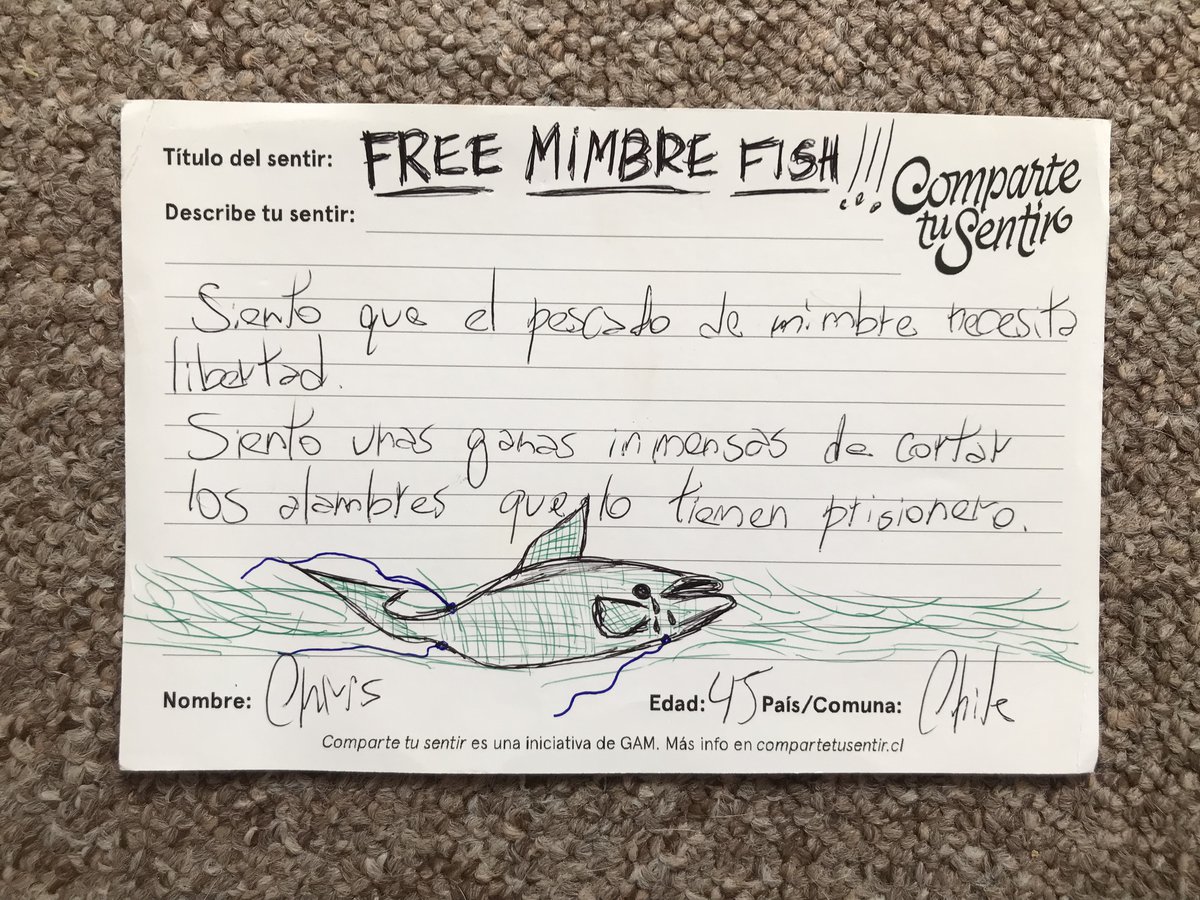 Título del sentir: FREE MIMBRE FISH!!!
Comparte
tu Sentir
Describe tu sentir:
Siento que el pescado de mimbre necesita
libertad.
Siento unas ganas inmensas de cortar
los alambres que lo tienen prisionero.
Nombre: Chris Edad: 45 País/Comuna: Chile
Comparte tu sentir es una iniciativa de GAM. Más info en compartetusentir.cl